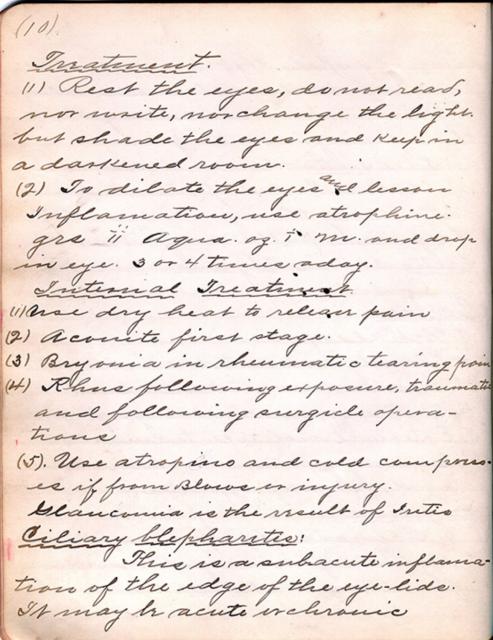 (10)
Treatment.
(1) Rest the eyes, do not read,
nor write, nor change the light.
but shade the eyes and keep in
a darkened room.
(2) To dilate the eyes and lesson
Inflamation, use atrophine.
grs ii Aqua. oz. i M. and drop
in eye. 3 or 4 times a day.
Internal Treatment
(1) Use dry heat to releser pain
(2) Aconite first stage.
(3) Bryonia in rheumatic tearing pain
(4) Rhus following exposure, traumatic
and following surgicle opera-
tions
(5). Use atropino and cold compress-
es if from Blows or injury.
Glaucomia is the result of Iritis
Ciliary blepharites:
This is a subacute inflama-
tion of the edge of the eye-lids.
It may be acute or chronic